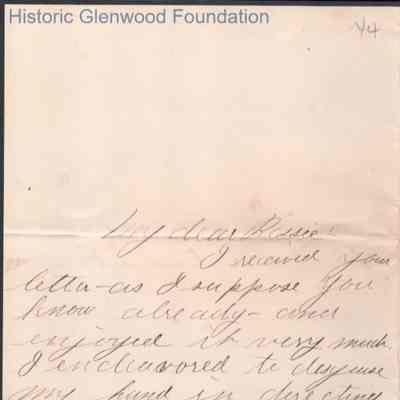 Historic Glenwood Foundation
1/4
My dear Bessie!
I received your
letter-as I suppose you
know already-and
enjoyed it very much.
I endeavored to disguise
my hand in directing